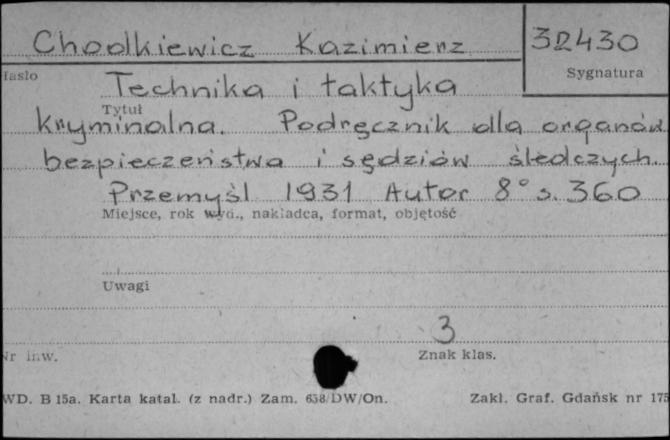 Chodkiewicz Kazimierz 32430
Hasło Sygnatura
Technika i taktyka
Tytuł
kryminalna. Podręcznik dla organów
bezpieczeństwa i sędziów śledczych.
Przemyśl 1931 Autor 8° s. 360
Miejsce, rok wyd., nakładca, format, objętość
Uwagi
3
Nr inw. Znak klas.
WD. B 15a. Karta katal. (z nadr.) Zam. 658/DW/On. Zakł. Graf. Gdańsk nr 175